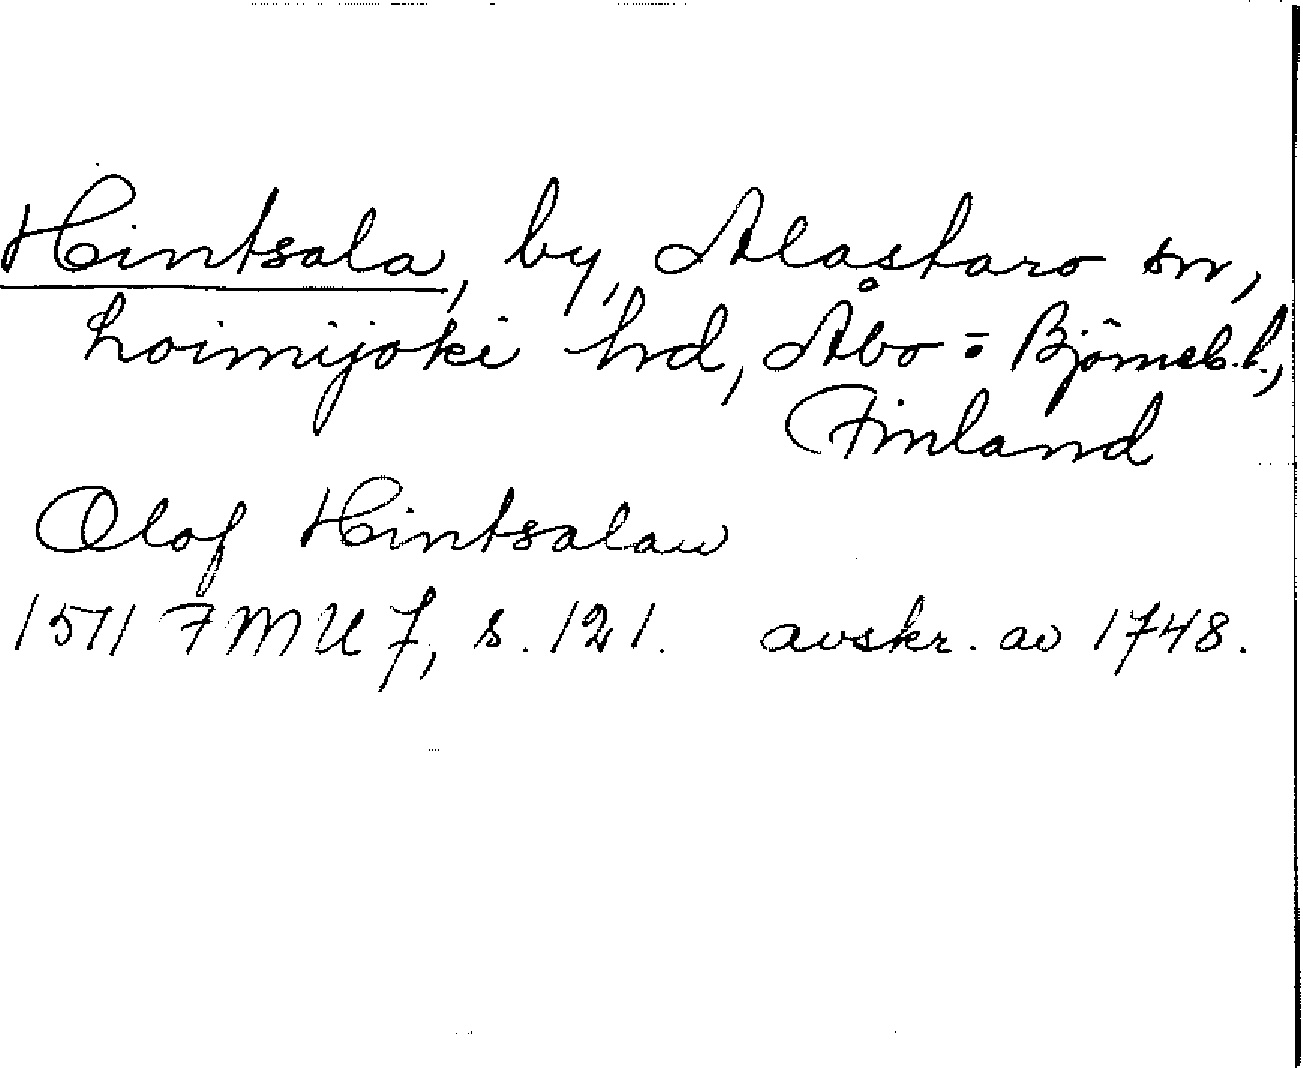 Hintsala, by, Alastaro sn,
Loimijoki hd, Åbo = Björneb. l.,
Finland
Olof Hintsalau
1571 FMU 7, s. 121. avskr. av 1748.